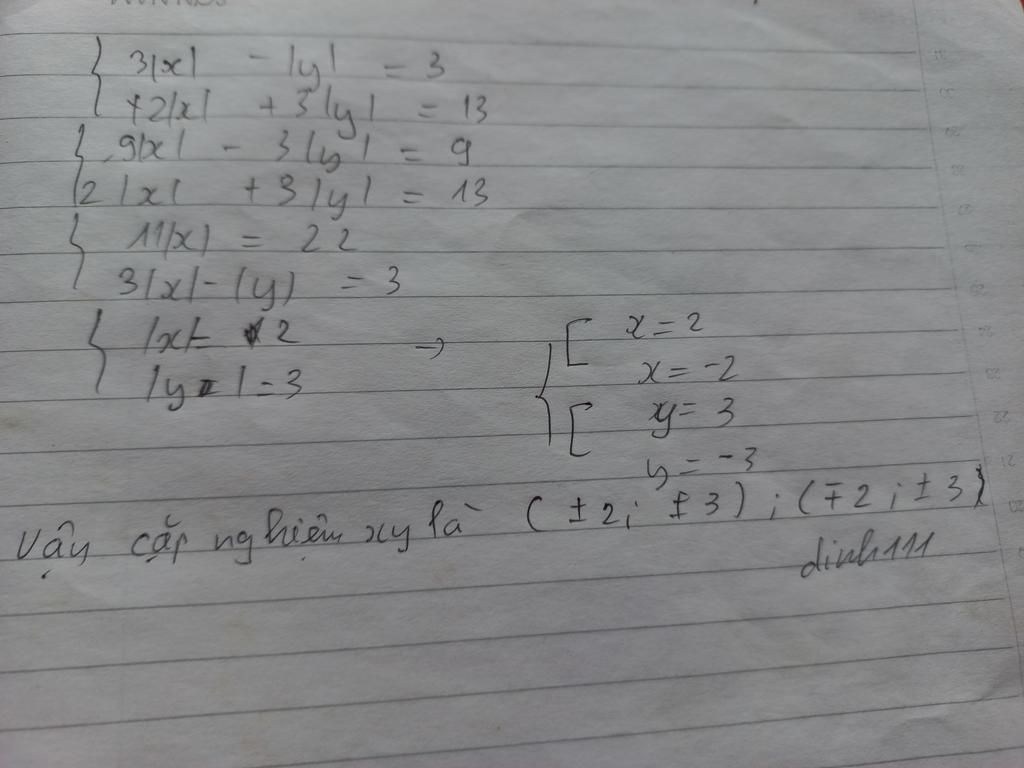 3|x| - |y| = 3
+2|x| + 3|y| = 13
9|x| - 3|y| = 9
2|x| + 3|y| = 13
11|x| = 22
3|x| - |y| = 3
|x| = 2 → x = 2
x = -2
|y| = 3 y = 3
y = -3
Vậy cặp nghiệm xy là (±2; ±3); (∓2; ±3)
dinh111